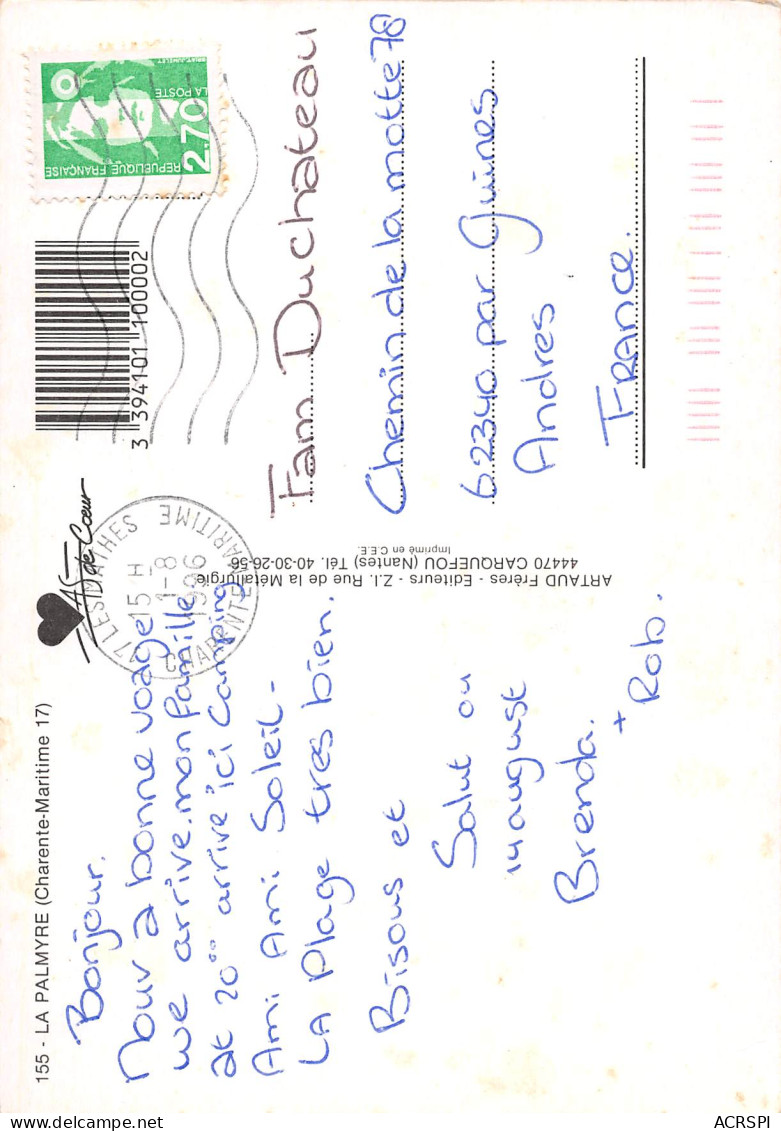 155 - LA PALMYRE (Charente-Maritime 17)
Bonjour.
Nour a bonne voage
we arrive. mon famille
at 20°° arrive ici Camping
Ami Ami Soleil -
LA Plage tres bien.
Bisous et
Salut ou
14 august
Brenda.
+ Rob.
AS de Cœur
17 LES MATHES
15 H
1-8
1996
CHARENTE MARITIME
ARTAUD Frères - Editeurs - Z.I. Rue de la Métallurgie
44470 CARQUEFOU (Nantes) Tél. 40-30-26-56
Imprimé en C.E.E.
3 394101 100002
2,70
RÉPUBLIQUE FRANÇAISE
LA POSTE
BRIAT-JUMELET
Fam Duchateau
Chemin de la motte 78
62340 par Guines
Andres
FRANCE.
ACRSPI